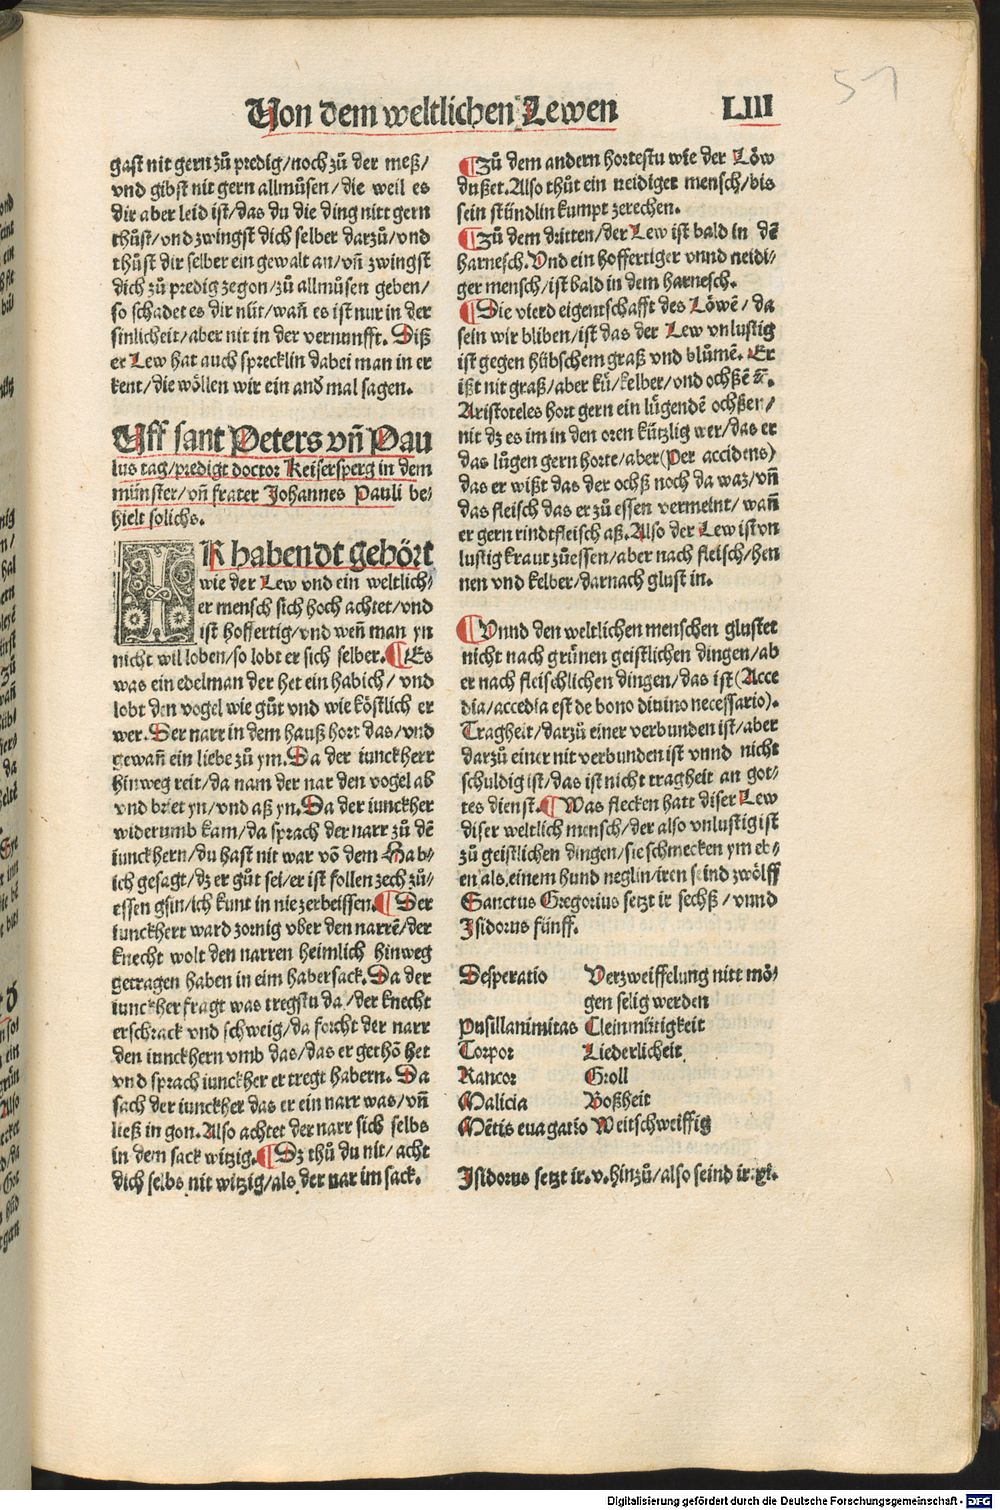 Von dem weltlichen Lewen
LIII
gast nit gern zů predig/noch zů der meß/
vnd gibst nit gern allmůsen/die weil es
dir aber leid ist/das du die ding nitt gern
thůst/vnd zwingst dich selber darzů/vnd
thůst dir selber ein gewalt an/vñ zwingst
dich zů predig zegon/zů allmůsen geben/
so schadet es dir nüt/wañ es ist nur in der
sinlicheit/aber nit in der vernunfft. Diß
er Lew hat auch sprecklin dabei man in er
kent/die wöllen wir ein and mal sagen.
Uff sant Peters vñ Pau
lus tag/predigt doctor Keisersperg in dem
münster/vñ frater Johannes Pauli be⸗
hielt solichs.
IR habendt gehört
wie der Lew vnd ein weltlich⸗
er mensch sich hoch achtet/vnd
ist hoffertig/vnd weñ man yn
nicht wil loben/so lobt er sich selber. ¶Es
was ein edelman der het ein habich/ vnd
lobt den vogel wie gůt vnd wie köstlich er
wer. Der narr in dem hauß hort das/vnd
gewañ ein liebe zů ym. Da der iunckherr
hinweg reit/da nam der nar den vogel ab
vnd briet yn/vnd aß yn. Da der iunckher
widerumb kam/da sprach der narr zů dē
iunckhern/du hast nit war võ dem Hab⸗
ich gesagt/dz er gůt sei/er ist follen zech zů⸗
essen gsin/ich kunt in nie zerbeissen. ¶Der
iunckherr ward zornig vber den narrē/der
knecht wolt den narren heimlich hinweg
getragen haben in eim habersack. Da der
iunckher fragt was tregstu da/der knecht
erschrack vnd schweig/da forcht der narr
den iunckhern vmb das/das er gethõ het
vnd sprach iunckher er tregt habern. Da
sach der iunckher das er ein narr was/vñ
ließ in gon. Also achtet der narr sich selbs
in dem sack witzig. ¶Dz thů du nit/ acht
dich selbs nit witzig/als der nar im sack.
¶Zů dem andern hortestu wie der Löw
dußet. Also thůt ein neidiger mensch/bis
sein stündlin kumpt zerechen.
¶Zů dem dritten/der Lew ist bald in dē
harnesch. Vnd ein hoffertiger vnnd neidi⸗
ger mensch/ist bald in dem harnesch.
¶Die vierd eigentschafft des Löwē/ da
sein wir bliben/ist das der Lew vnlustig
ist gegen hübschem graß vnd blůmē. Er
ißt nit graß/aber kü/kelber/vnd ochßē ꝛc̄.
Aristoteles hort gern ein lügendē ochßen/
nit dz es im in den oren kützlig wer/das er
das lügen gern horte/aber(Per accidens)
das er wißt das der ochß noch da waz/vñ
das fleisch das er zů essen vermeint/ wañ
er gern rindtfleisch aß. Also der Lew ist vn
lustig kraut zůessen/aber nach fleisch/hen
nen vnd kelber/darnach glust in.
¶Vnnd den weltlichen menschen glustet
nicht nach grünen geistlichen dingen/ab
er nach fleischlichen dingen/das ist (Acce
dia/accedia est de bono diuino necessario).
Tragheit/darzů einer verbunden ist/aber
darzů einer nit verbunden ist vnnd nicht
schuldig ist/das ist nicht tragheit an got⸗
tes dienst. ¶Was flecken hatt diser Lew
diser weltlich mensch/der also vnlustig ist
zů geistlichen dingen/sie schmecken ym eb⸗
en als einem hund neglin/iren seind zwölff
Sanctus Gregorius setzt ir sechß/ vnnd
Isidorus fünff.
Desperatio Verzweiffelung nitt mö⸗
gen selig werden
Pusillanimitas Cleinmütigkeit
Torpor Liederlicheit
Rancor Groll
Malicia Boßheit
Mētis euagatio Weitschweiffig
Isidorus setzt ir.v.hinzů/also seind ir.xi.
51
Digitalisierung gefördert durch die Deutsche Forschungsgemeinschaft - DFG